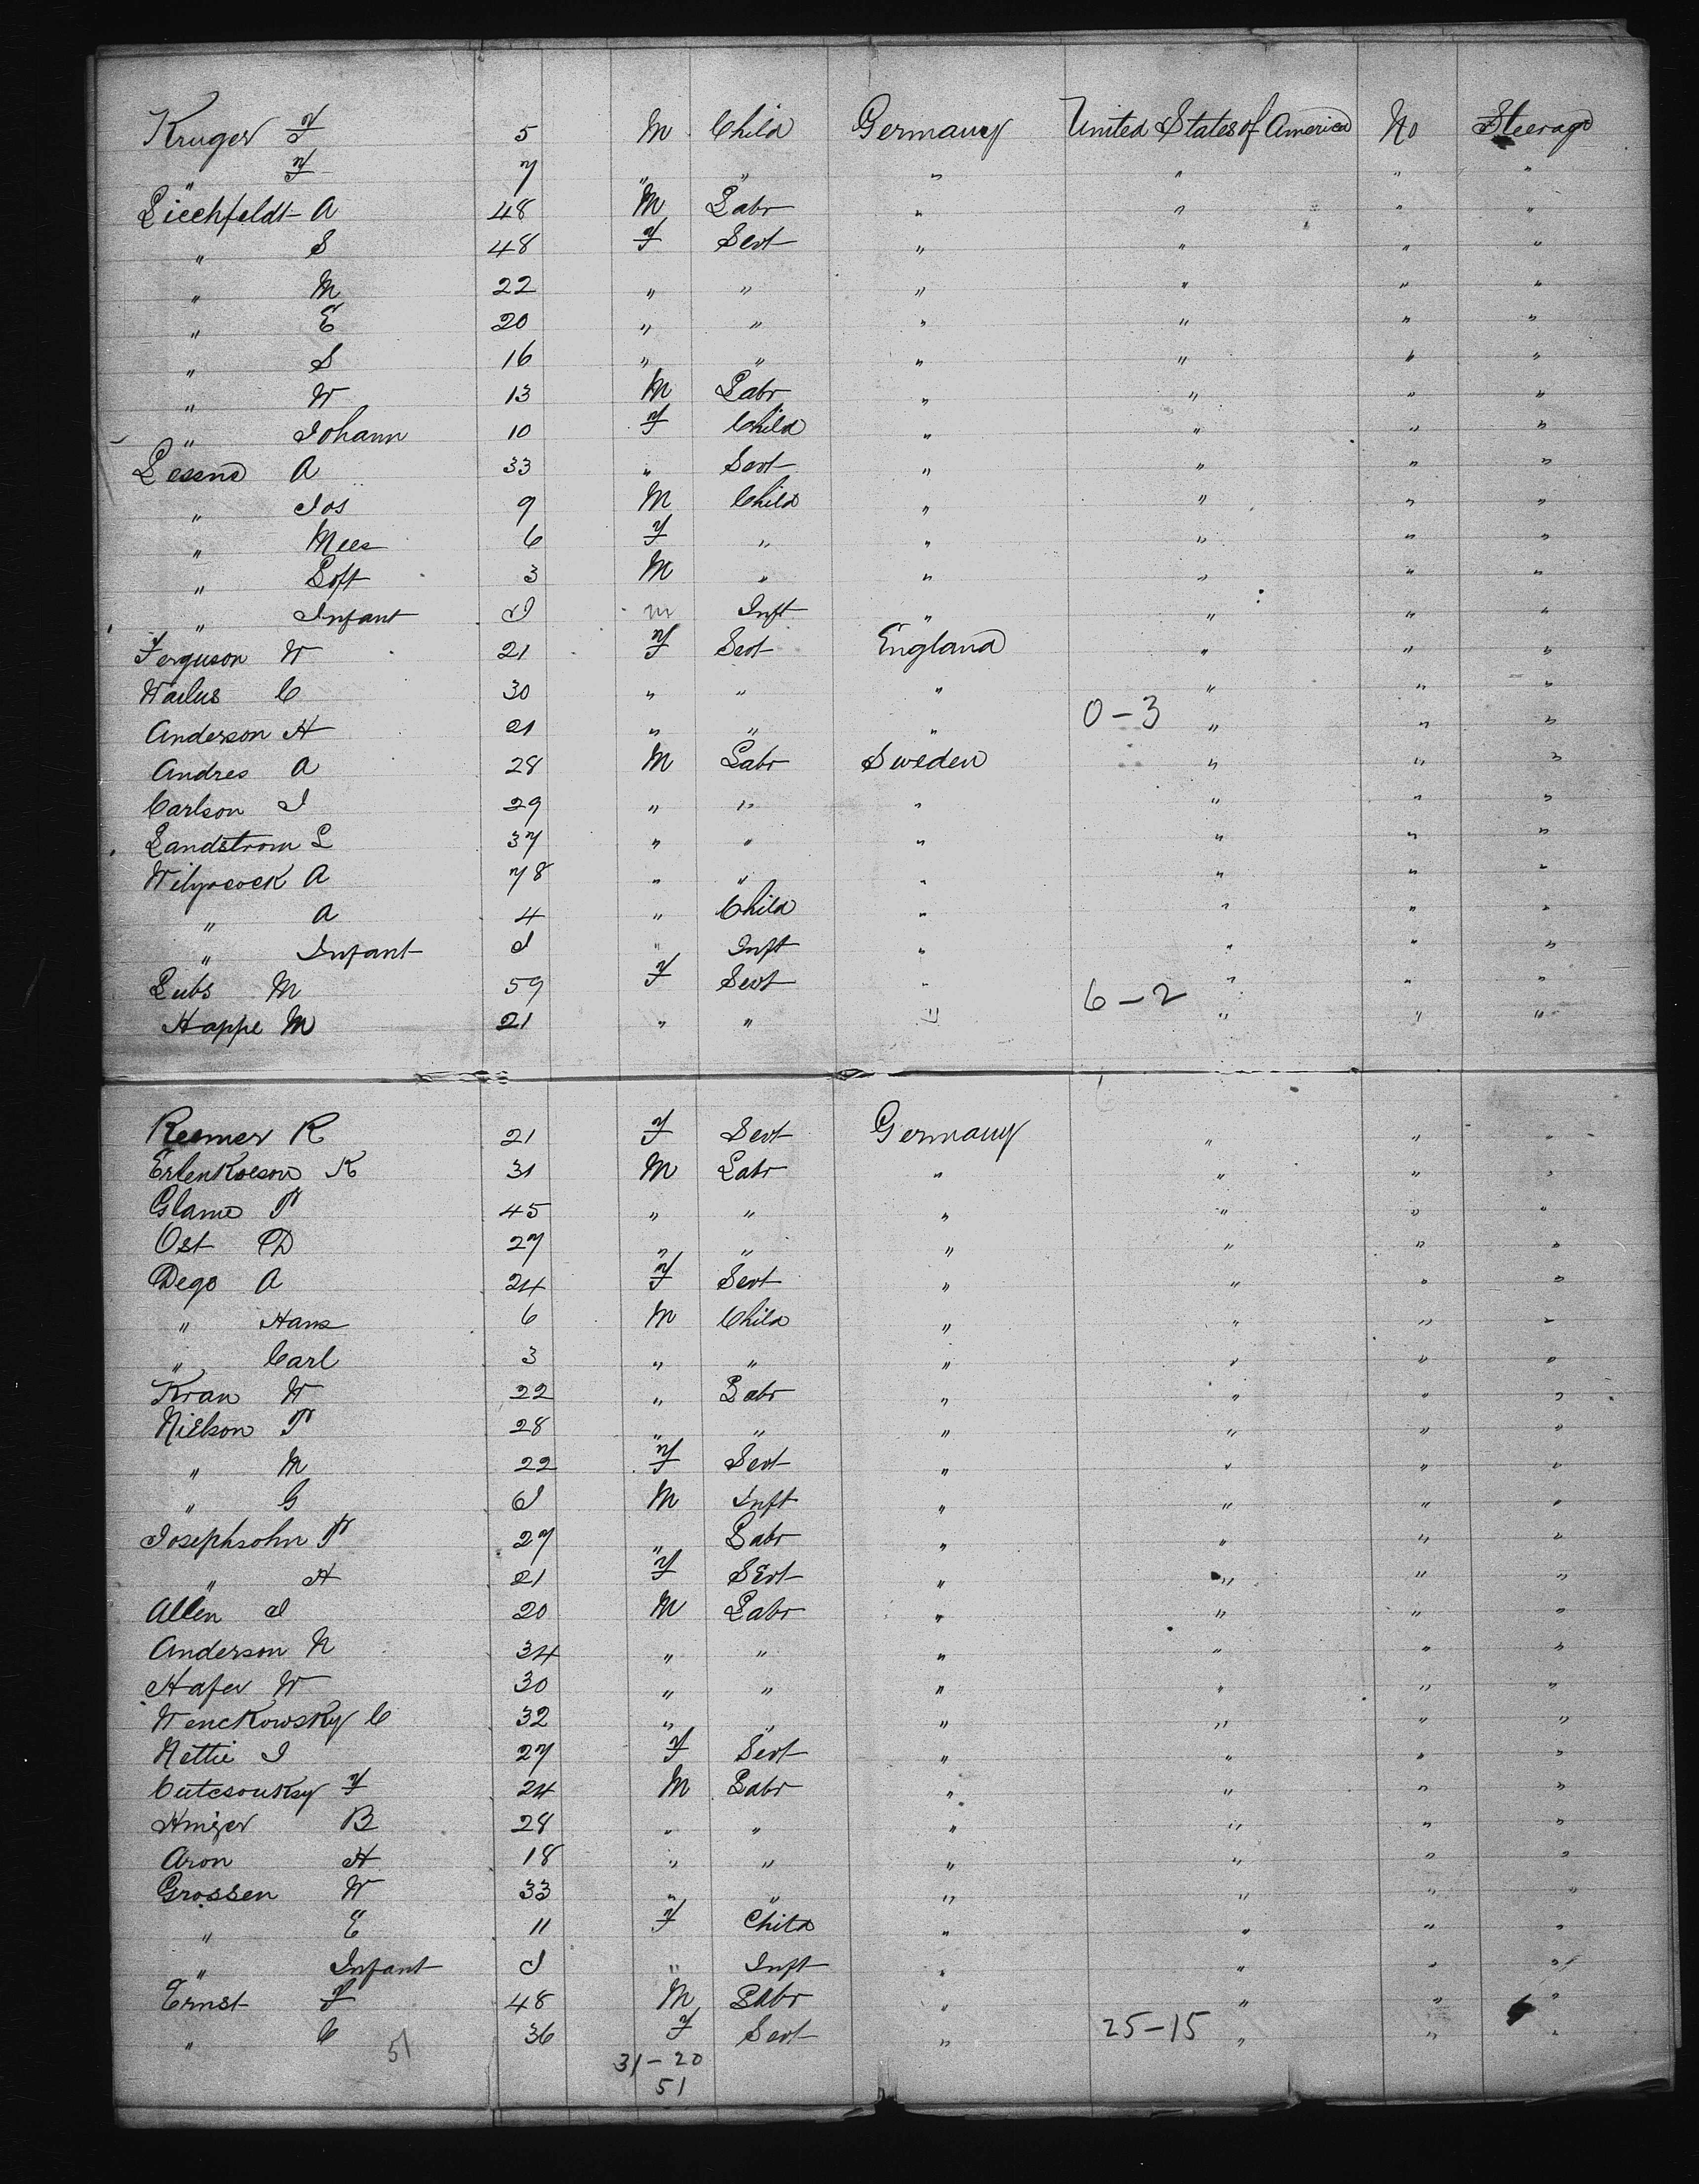 Kruger F 5 M Child Germany United States of America No Steerage
" F 7 " " " " " "
Liechfeldt A 48 M Labr " " " "
" S 48 F Sevt " " " "
" M 22 " " " " " "
" E 20 " " " " " "
" S 16 " " " " " "
" W 13 M Labr " " " "
" Johann 10 F Child " " " "
A 33 " Sevt " " " "
" Jos 9 M Child " " " "
" Mees 6 F " " " " "
" 3 M " " " " "
" Infant I m Inft " " " "
Ferguson W 21 F Sevt England " " "
C 30 " " " " " "
Anderson H 21 " " " 0-3 " " "
Andres A 28 M Labr Sweden " " "
Carlson J 29 " " " " " "
Landstrom L 37 " " " " " "
A 78 " " " " " "
" A 4 " Child " " " "
" Infant I " Inft " " " "
Lubs M 59 F Sevt " " " "
Happe M 21 " " " 6-2 " " "
Reemer R 21 F Sevt Germany " " "
K 31 M Labr " " " "
Glame P 45 " " " " " "
Ost D 27 " " " " " "
Dego A 24 F Sevt " " " "
" Hans 6 M Child " " " "
" Carl 3 " " " " " "
Kran W 22 " Labr " " " "
Nielson P 28 " " " " " "
" M 22 F Sevt " " " "
" G M Inft " " " "
Josephsohn P 27 " Labr " " " "
" H 21 F Sevt " " " "
Allen J 20 M Labr " " " "
Anderson N 34 " " " " " "
Hafer W 30 " " " " " "
Wenckowsky C 32 " " " " " "
Nettie J 27 F Sevt " " " "
F 24 M Labr " " " "
B 28 " " " " " "
Aron H 18 " " " " " "
Grossen W 33 " " " " " "
" E 11 F Child " " " "
" Infant I " Inft " " " "
Ernst F 48 M Labr " " " "
" C 36 F Sevt " 25-15 " " "
51 31-20
51